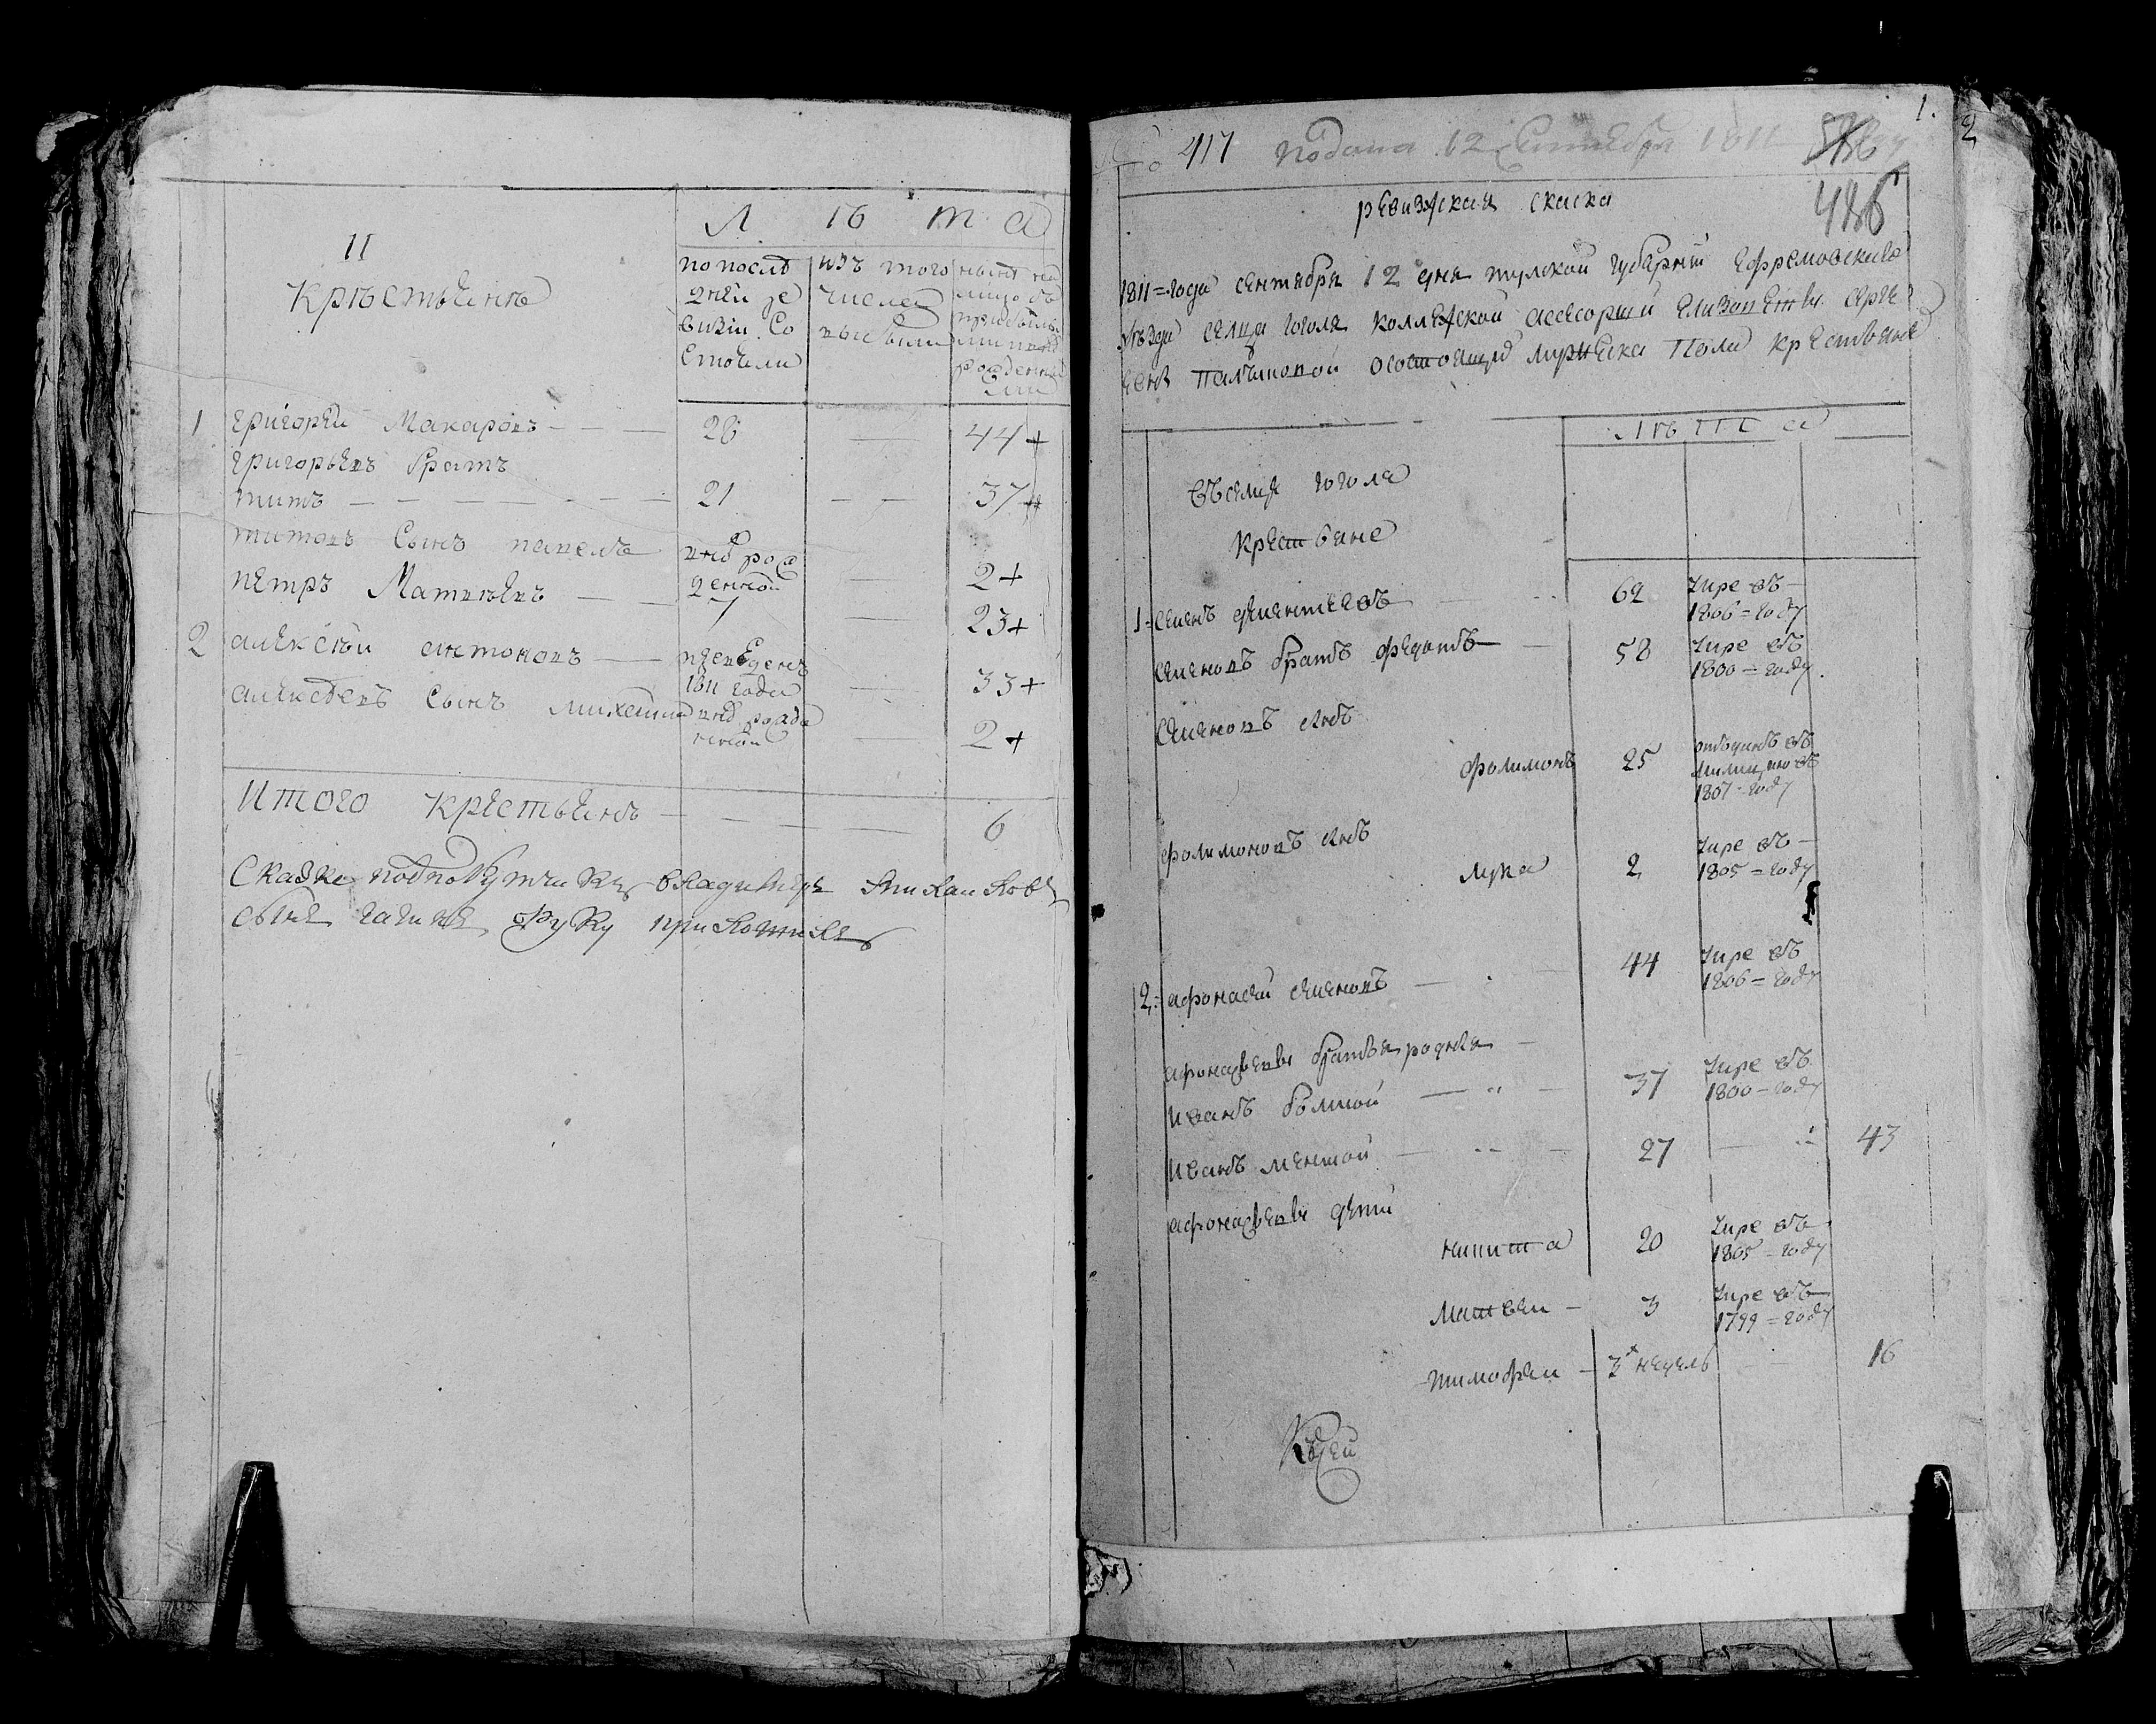 II
крѣстьянѣ
Л ѣ т а
по послѣ
дней ре
визіи со
стояли
изъ того
числа
выбыли
1 григорей Макаровъ — 28 — 44+
григорьевъ братъ
титъ — 21 — 37+
титовъ сынъ павелъ вно рож
денной — 2+
петръ Матвѣевъ — 7 — 23+
2 алексѣй антоновъ — преведенъ
1811 года — 33+
алексѣевъ сынъ михаила вно рожде
нной — 2+
Итого крестьянъ — 6
сынъ руку приложилъ
1.
2
№ 417 подана 12 сентебря 1811
486
ревизская скаска
1811 = года сентября 12 дня тулской губернии ефремовскаго
уѣзда селца гоголя коллежской асесоршй елизаветы серге
евны состоящей мужеска пола крестьяне
Лѣта
въ селце гоголе
крестьяне
1. семенъ — 62 умре въ —
1806 = году
семеновъ братъ федотъ — 58 умре въ
1800 = году.
семеновъ сынъ
филимонъ 25 отъданъ въ
милицию въ
1807 = году
филимоновъ сынъ
лука 2 умре въ —
1805 = году
2. афонасей семеновъ — 44 умре въ
1806 = году
афонасьевы братья родныя —
иванъ болшой — 37 умре въ
1800 = году
иванъ меншой — 27 — 43
афонасьевы дети
никита 20 умре въ
1805 = году
матвеи — 3 умре въ —
1799 = году
тимофеи — 3 недель — 16